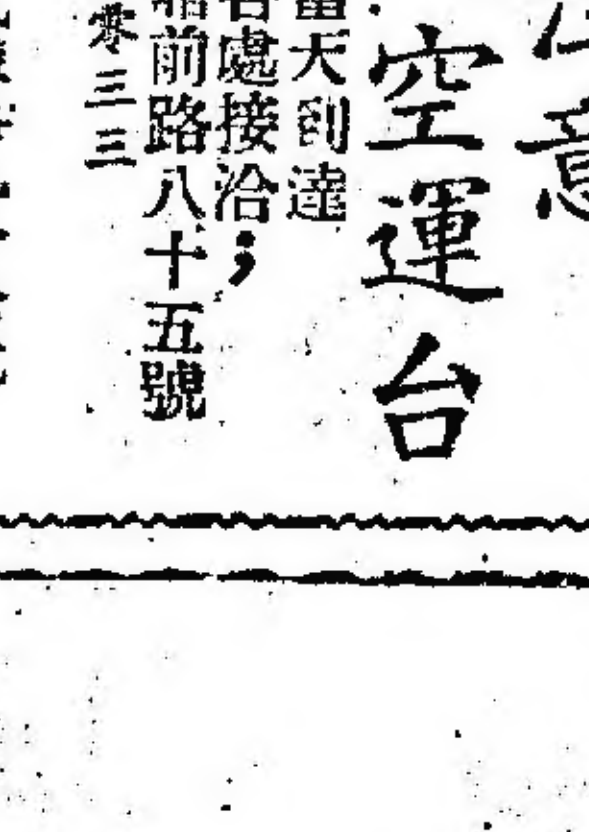 意
空運台
當天到達
各處接洽；
前路八十五號
零三三